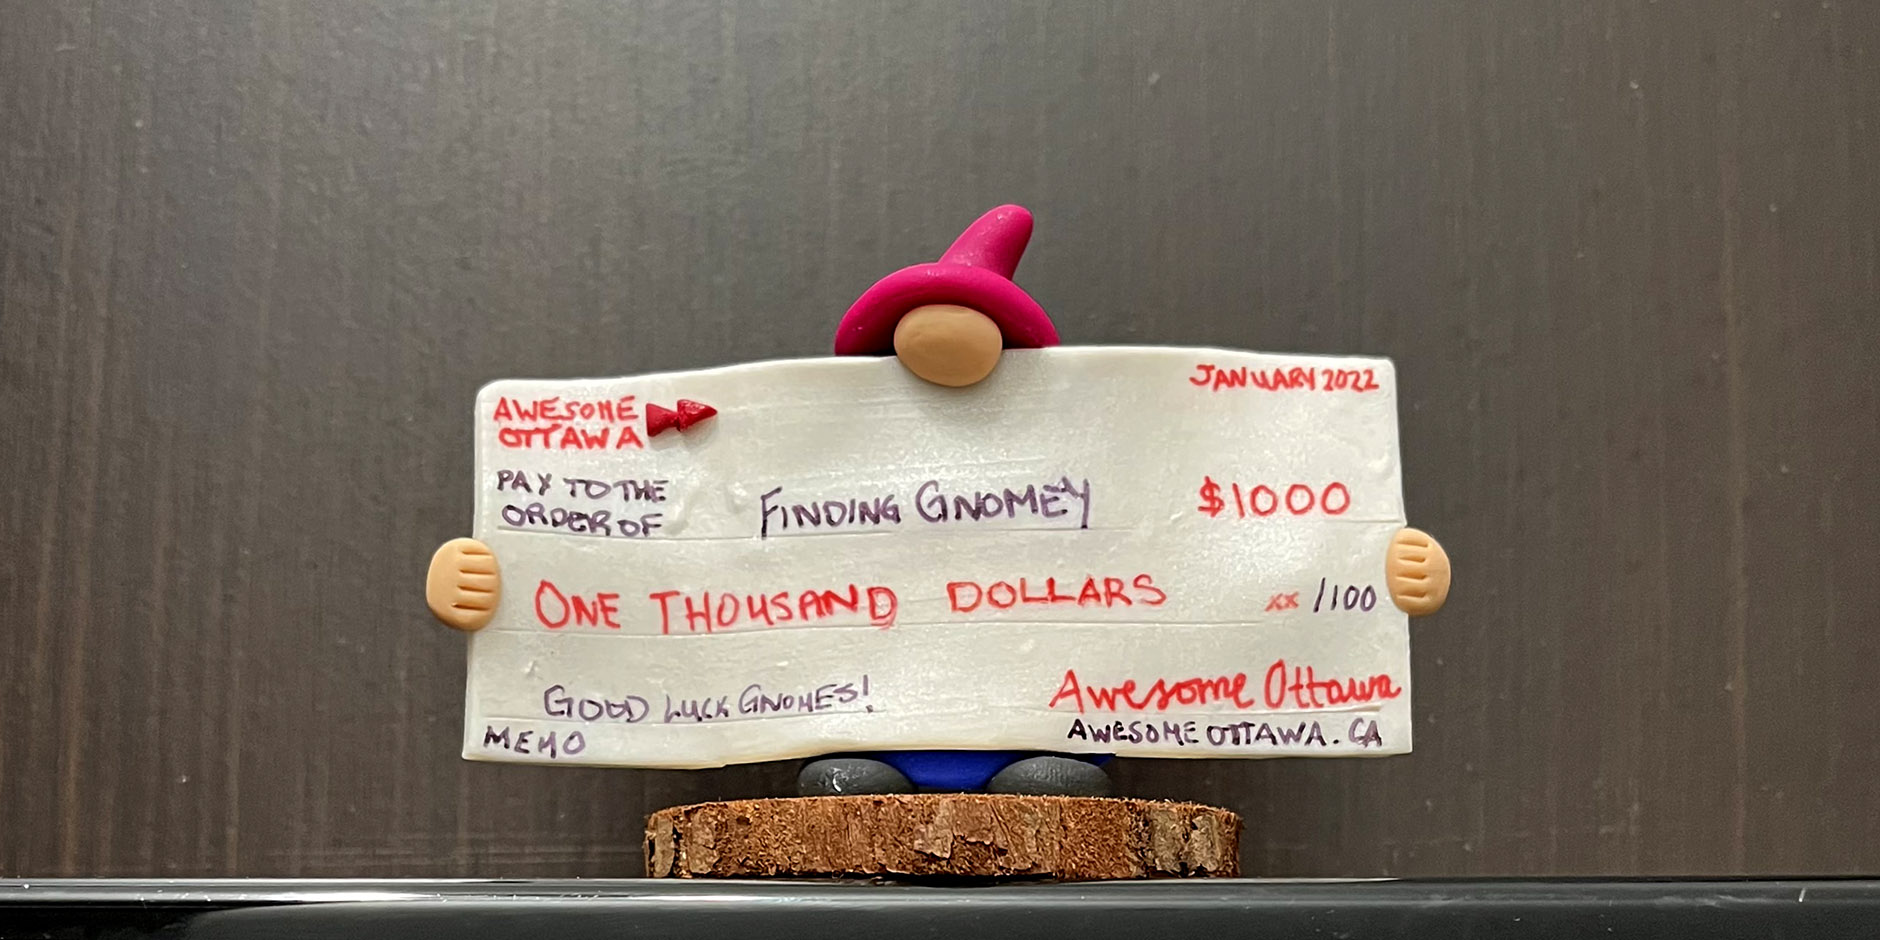 AWESOME
OTTAWA
JANUARY 2022
PAY TO THE
ORDER OF
FINDING GNOMEY
$1000
ONE THOUSAND DOLLARS
xx /100
GOOD LUCK GNOMES!
MEMO
Awesome Ottawa
AWESOMEOTTAWA.CA